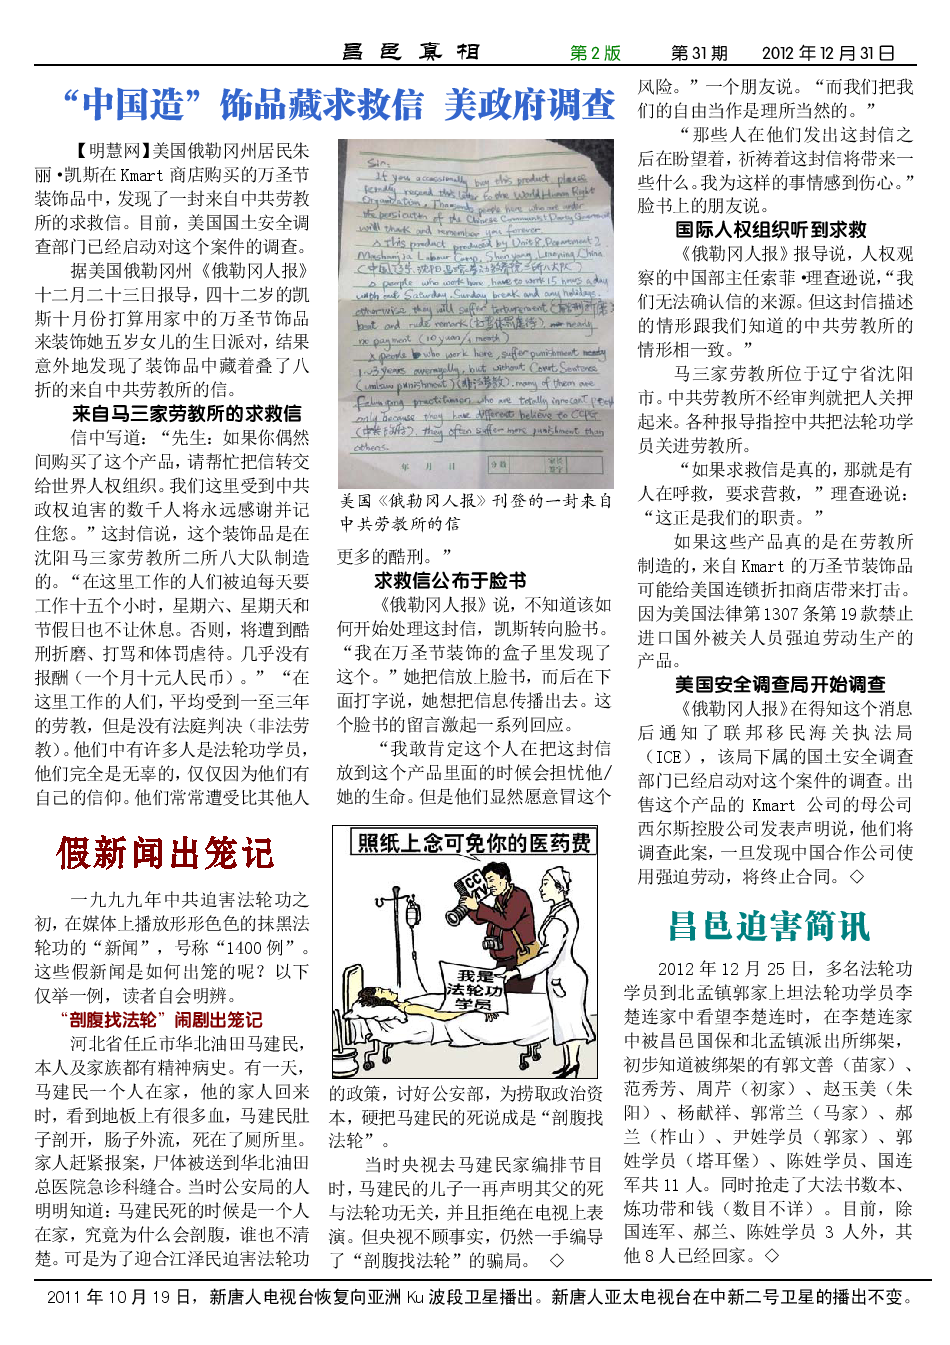 昌邑真相 第2版 第31期 2012年12月31日
“中国造”饰品藏求救信 美政府调查
【明慧网】美国俄勒冈州居民朱
丽·凯斯在Kmart商店购买的万圣节
装饰品中，发现了一封来自中共劳教
所的求救信。目前，美国国土安全调
查部门已经启动对这个案件的调查。
据美国俄勒冈州《俄勒冈人报》
十二月二十三日报导，四十二岁的凯
斯十月份打算用家中的万圣节饰品
来装饰她五岁女儿的生日派对，结果
意外地发现了装饰品中藏着叠了八
折的来自中共劳教所的信。
来自马三家劳教所的求救信
信中写道：“先生：如果你偶然
间购买了这个产品，请帮忙把信转交
给世界人权组织。我们这里受到中共
政权迫害的数千人将永远感谢并记
住您。”这封信说，这个装饰品是在
沈阳马三家劳教所二所八大队制造
的。“在这里工作的人们被迫每天要
工作十五个小时，星期六、星期天和
节假日也不让休息。否则，将遭到酷
刑折磨、打骂和体罚虐待。几乎没有
报酬（一个月十元人民币）。”“在
这里工作的人们，平均受到一至三年
的劳教，但是没有法庭判决（非法劳
教）。他们中有许多人是法轮功学员，
他们完全是无辜的，仅仅因为他们有
自己的信仰。他们常常遭受比其他人
Sir:
If you occassionally buy this product, please
kindly resend this letter to the World Human Right
Organization. Thousands people here who are under
the persicution of the Chinese Communist Party Government
will thank and remember you forever.
This product produced by Unit 8, Department 2,
Masanjia Labour Camp, Shenyang, Liaoning, China
people who work here, have to work 15 hours a day
with out Saturday, Sunday break and any holidays,
otherwise, they will suffer torturement
beat and rude remark nearly
no payment (10 yuan/1 month)
people who work here, suffer punishment
1~3 years averagelly, but without Court Sentence
(unlaw punishment) many of them are
Falun gong practitioner, who are totally innocent people
only because they have different believe to CCPG
they often suffer more punishment than
others.
年 月 日
美国《俄勒冈人报》刊登的一封来自
中共劳教所的信
更多的酷刑。”
求救信公布于脸书
《俄勒冈人报》说，不知道该如
何开始处理这封信，凯斯转向脸书。
“我在万圣节装饰的盒子里发现了
这个。”她把信放上脸书，而后在下
面打字说，她想把信息传播出去。这
个脸书的留言激起一系列回应。
“我敢肯定这个人在把这封信
放到这个产品里面的时候会担忧他/
她的生命。但是他们显然愿意冒这个
风险。”一个朋友说。“而我们把我
们的自由当作是理所当然的。”
“那些人在他们发出这封信之
后在盼望着，祈祷着这封信将带来一
些什么。我为这样的事情感到伤心。”
脸书上的朋友说。
国际人权组织听到求救
《俄勒冈人报》报导说，人权观
察的中国部主任索菲·理查逊说，“我
们无法确认信的来源。但这封信描述
的情形跟我们知道的中共劳教所的
情形相一致。”
马三家劳教所位于辽宁省沈阳
市。中共劳教所不经审判就把人关押
起来。各种报导指控中共把法轮功学
员关进劳教所。
“如果求救信是真的，那就是有
人在呼救，要求营救，”理查逊说：
“这正是我们的职责。”
如果这些产品真的是在劳教所
制造的，来自Kmart的万圣节装饰品
可能给美国连锁折扣商店带来打击。
因为美国法律第1307条第19款禁止
进口国外被关人员强迫劳动生产的
产品。
美国安全调查局开始调查
《俄勒冈人报》在得知这个消息
后通知了联邦移民海关执法局
（ICE），该局下属的国土安全调查
部门已经启动对这个案件的调查。出
售这个产品的 Kmart 公司的母公司
西尔斯控股公司发表声明说，他们将
调查此案，一旦发现中国合作公司使
用强迫劳动，将终止合同。◇
假新闻出笼记
一九九九年中共迫害法轮功之
初，在媒体上播放形形色色的抹黑法
轮功的“新闻”，号称“1400例”。
这些假新闻是如何出笼的呢？以下
仅举一例，读者自会明辨。
“剖腹找法轮”闹剧出笼记
河北省任丘市华北油田马建民，
本人及家族都有精神病史。有一天，
马建民一个人在家，他的家人回来
时，看到地板上有很多血，马建民肚
子剖开，肠子外流，死在了厕所里。
家人赶紧报案，尸体被送到华北油田
总医院急诊科缝合。当时公安局的人
明明知道：马建民死的时候是一个人
在家，究竟为什么会剖腹，谁也不清
楚。可是为了迎合江泽民迫害法轮功
照纸上念可免你的医药费
CC
TV
我是
法轮功
学员
的政策，讨好公安部，为捞取政治资
本，硬把马建民的死说成是“剖腹找
法轮”。
当时央视去马建民家编排节目
时，马建民的儿子一再声明其父的死
与法轮功无关，并且拒绝在电视上表
演。但央视不顾事实，仍然一手编导
了“剖腹找法轮”的骗局。 ◇
昌邑迫害简讯
2012年12月25日，多名法轮功
学员到北孟镇郭家上坦法轮功学员李
楚连家中看望李楚连时，在李楚连家
中被昌邑国保和北孟镇派出所绑架，
初步知道被绑架的有郭文善（苗家）、
范秀芳、周芹（初家）、赵玉美（朱
阳）、杨献祥、郭常兰（马家）、郝
兰（柞山）、尹姓学员（郭家）、郭
姓学员（塔耳堡）、陈姓学员、国连
军共11人。同时抢走了大法书数本、
炼功带和钱（数目不详）。目前，除
国连军、郝兰、陈姓学员 3 人外，其
他8人已经回家。◇
2011年10月19日，新唐人电视台恢复向亚洲Ku波段卫星播出。新唐人亚太电视台在中新二号卫星的播出不变。